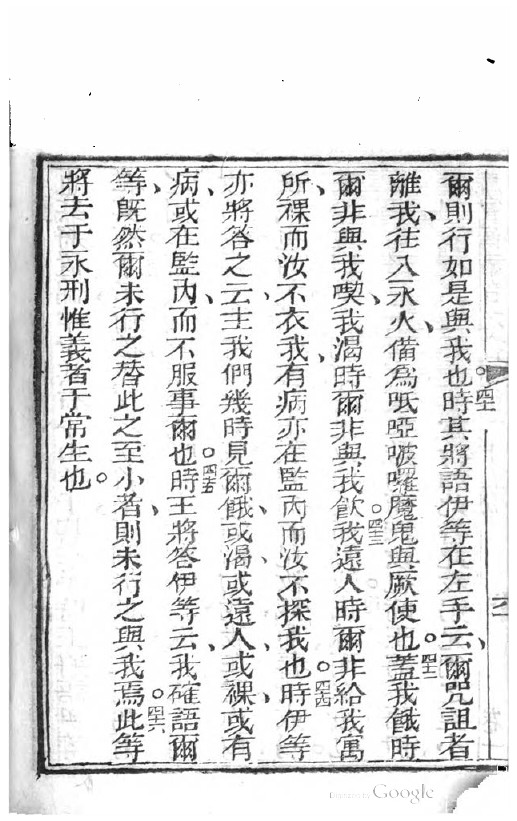 爾則行如是與我也。四一時其將語伊等在左手云、爾咒詛者
離我、往入永火、備爲呧啞㖕囉魔鬼與厥使也。四二蓋我餓時
爾非與我喫、我渴時爾非與我飲。四三我遠人時爾非給我寓
所、祼而汝不衣我、有病亦在監內而汝不探我也。四四時伊等
亦將答之云主我們幾時見爾餓、或渴、或遠人、或祼、或有
病、或在監內、而不服事爾也。四五時王將答伊等云、我確語爾
等、既然爾未行之替此之至小者、則未行之與我焉。四六此等
將去于永刑惟義者于常生也。
Digitized by Google